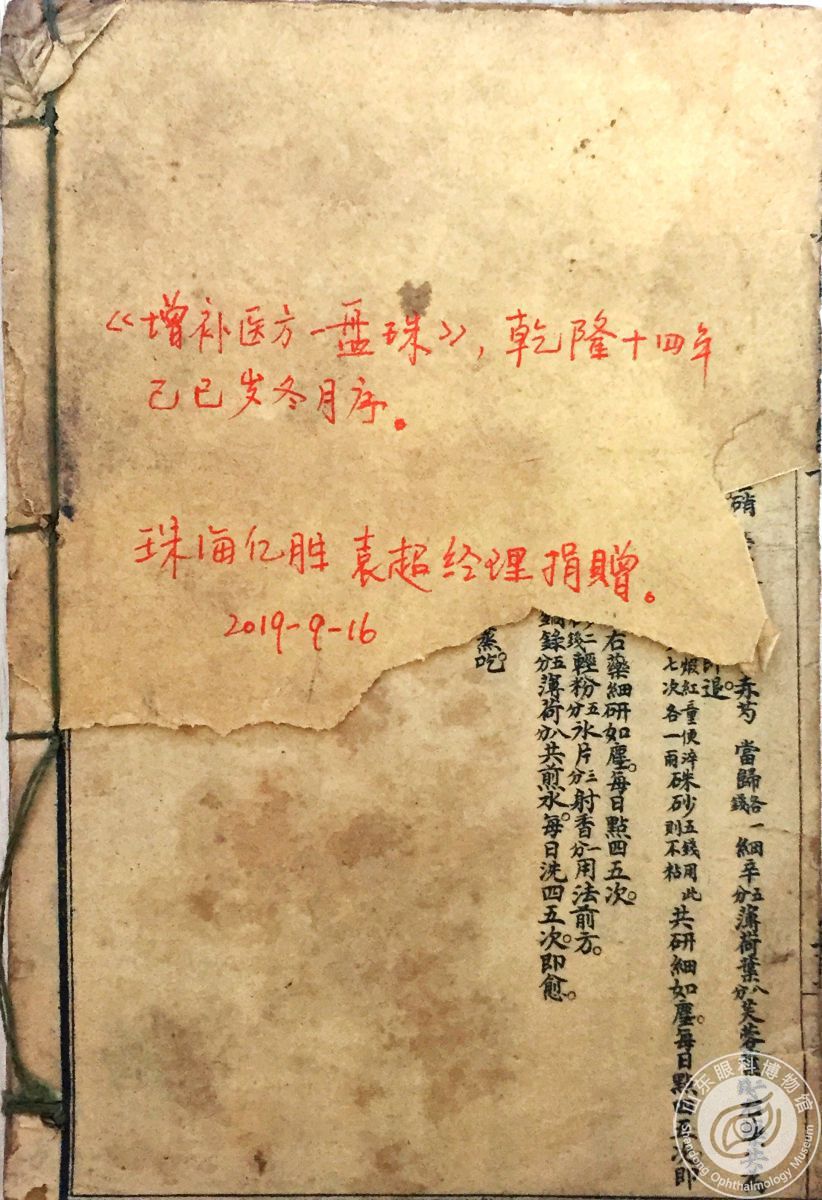 《增补医方一盘珠》，乾隆十四年
己巳岁冬月序。
珠海亿胜 袁超经理捐赠。
2019-9-16
硝
赤芍 當歸各一錢 細辛五分 薄荷葉八分 芙蓉葉
即退。
煅紅童便淬硃砂五錢用此
七次各一兩硃砂則不粘
共研細如塵。每日點四五次即
右藥細研如塵。每日點四五次。
輕粉五分 氷片三分 射香一分 用法前方。
銅錄五分 薄荷八分 共煎水。每日洗四五次。即愈。
蒸吃。
山东眼科博物馆
Shandong Ophthalmology Museum